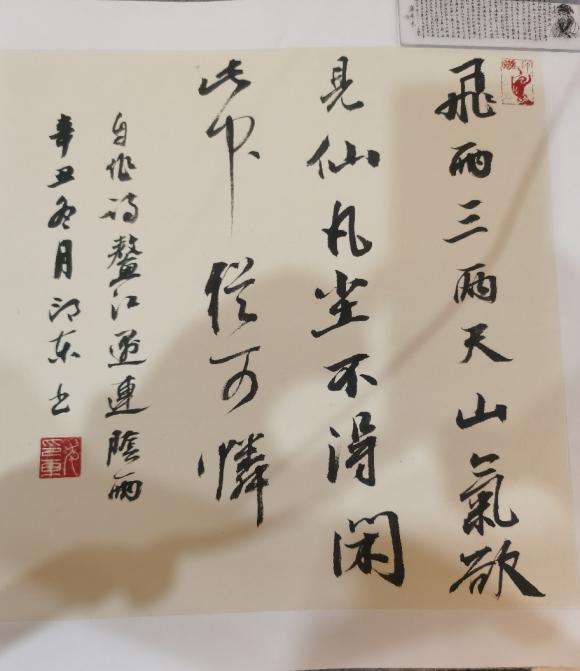 飛雨三兩天山氣欲
見仙凡坐不得閑
此中從可憐
自作詩鰲江遇連陰雨
辛丑冬月邱東书